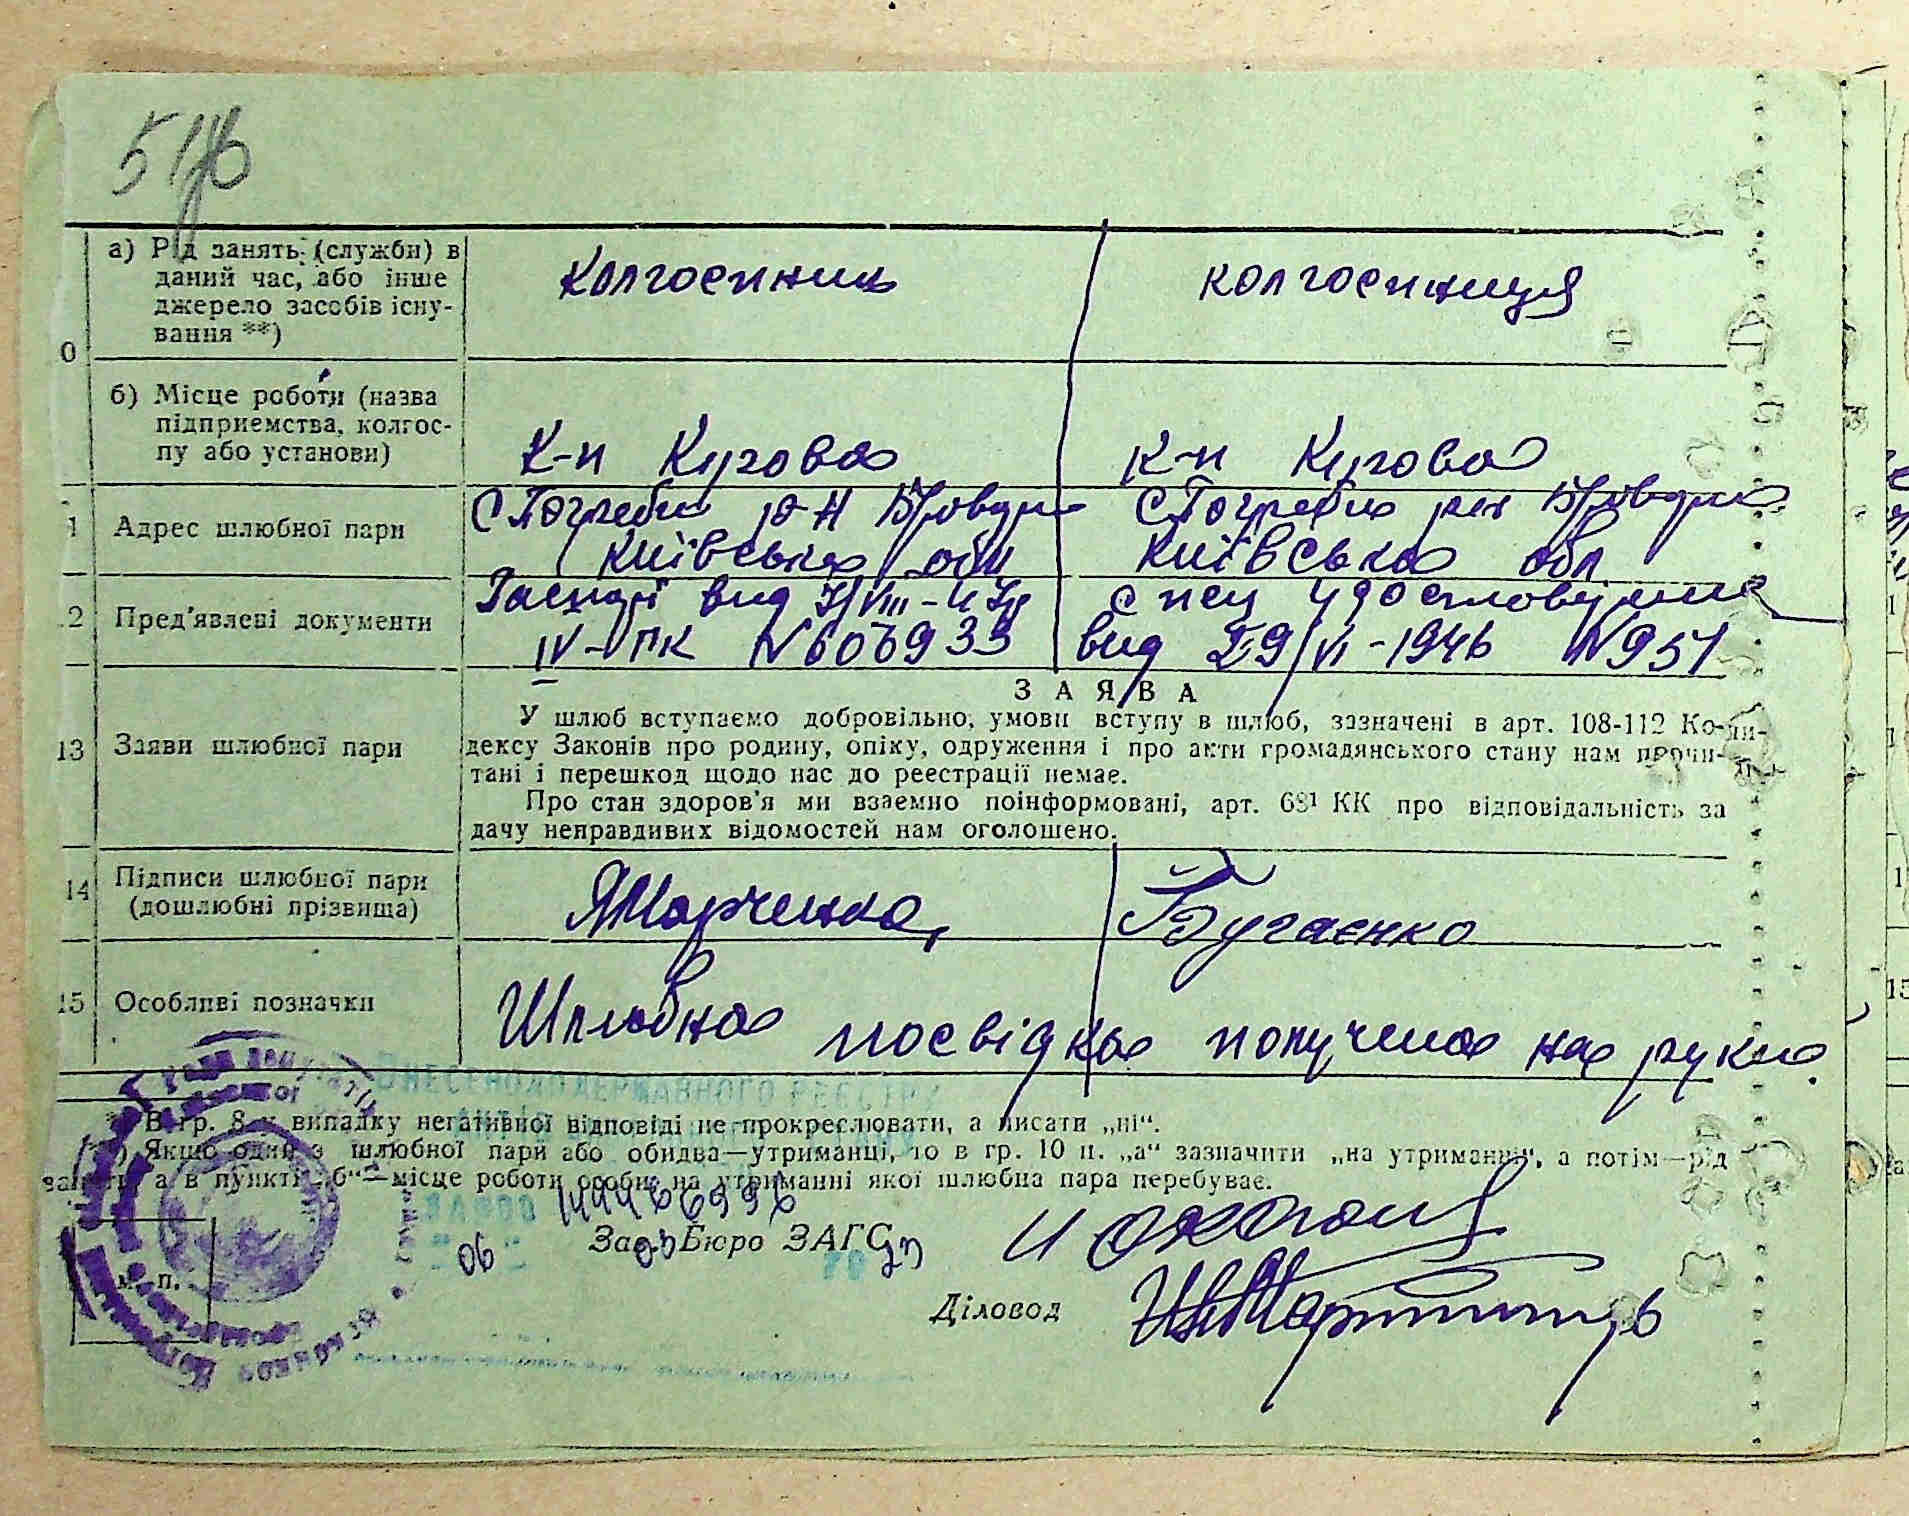 а) Рід занять (служби) в
даний час, або інше
джерело засобів існу-
вання **)
колгоспник
колгоспниця
0
б) Місце роботи (назва
підприємства, колгос-
пу або установи)
К-п Кірова
К-п Кірова
1
Адрес шлюбної пари
С Погреби р-н Бровари
Київська обл
С Погреби рн Бровари
Київська обл
2
Пред'явлені документи
Паспорт вид
IV-ПК N 606933
спец удостовірение
вид 29/VI-1946 N951
ЗАЯВА
13
Заяви шлюбної пари
У шлюб вступаємо добровільно, умови вступу в шлюб, зазначені в арт. 108-112 Ко-
дексу Законів про родину, опіку, одруження і про акти громадянського стану нам прочи-
тані і перешкод щодо нас до реестрації немає.
Про стан здоров'я ми взаємно поінформовані, арт. 68¹ КК про відповідальність за
дачу неправдивих відомостей нам оголошено.
14
Підписи шлюбної пари
(дошлюбні прізвища)
ЯМарченко,
Бугаєнко
15
Особливі позначки
Шлюбна посвідка получена на руки.
ВНЕСЕНО ДО ДЕРЖАВНОГО РЕЄСТРУ
*) В гр. 8-у випадку негативної відповіді не прокреслювати, а писати „ні“.
**) Якщо один з шлюбної пари або обидва—утриманці, то в гр. 10 п. „а“ зазначити „на утриманні“, а потім—рід
занять, а в пункті „б“—місце роботи особи, на утриманні якої шлюбна пара перебуває.
Зав. Бюро ЗАГС
06
м. п.
Діловод